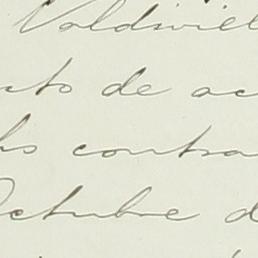 Valdivie
cto de ac
hs contra
Octubre d